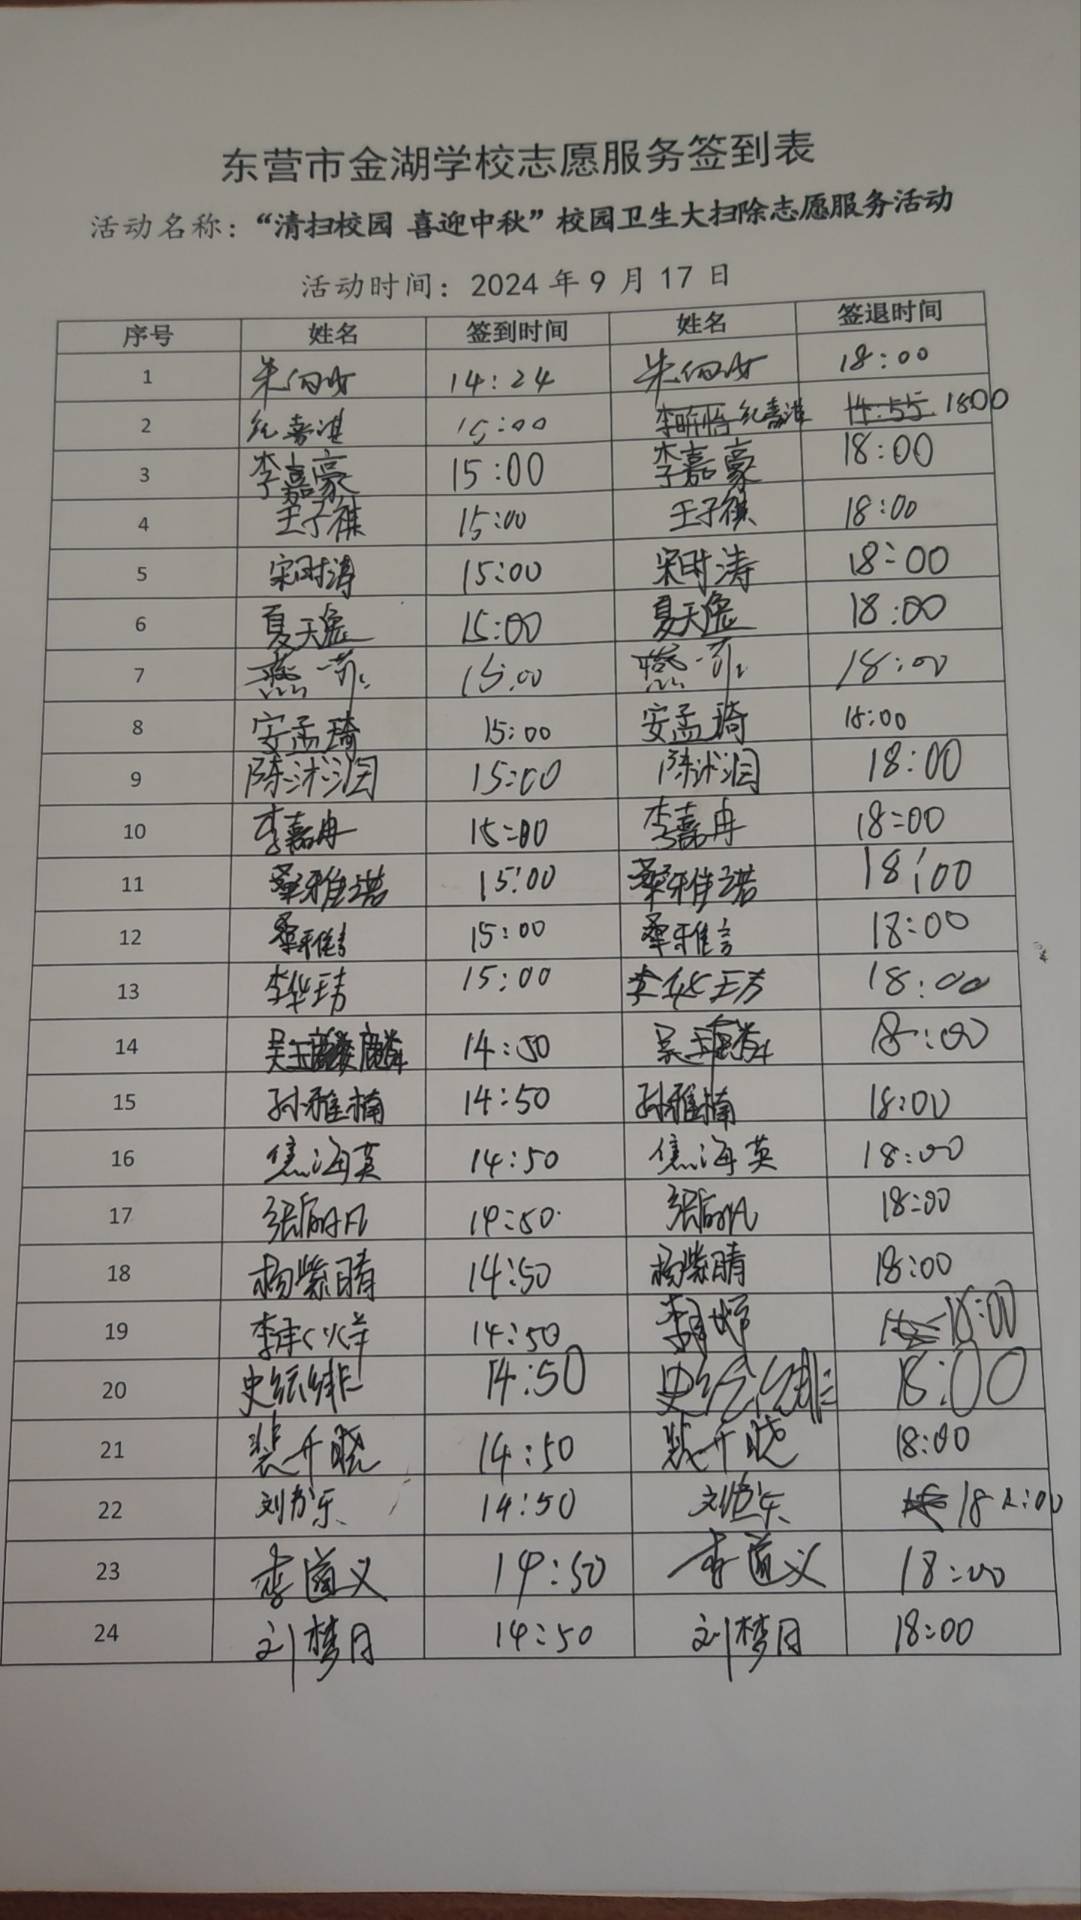 东营市金湖学校志愿服务签到表
活动名称：“清扫校园 喜迎中秋”校园卫生大扫除志愿服务活动
活动时间：2024 年 9 月 17 日
序号 姓名 签到时间 姓名 签退时间
1 14:24 18:00
2 纪嘉淇 15:00 纪嘉淇 1800
3 李嘉豪 15:00 李嘉豪 18:00
4 王子祺 15:00 王子祺 18:00
5 宋时涛 15:00 宋时涛 18:00
6 夏天逸 15:00 夏天逸 18:00
7 燕一 15:00 燕一 18:00
8 安孟琦 15:00 安孟琦 18:00
9 陈沭润 15:00 陈沭润 18:00
10 李嘉冉 15:00 李嘉冉 18:00
11 桑雅诺 15:00 桑雅诺 18:00
12 桑雅言 15:00 桑雅言 18:00
13 李华玤 15:00 李华玤 18:00
14 吴玉麟 14:50 吴玉麟 18:00
15 孙雅楠 14:50 孙雅楠 18:00
16 焦海英 14:50 焦海英 18:00
17 张 14:50 张 18:00
18 杨紫晴 14:50 杨紫晴 18:00
19 李 14:50 李 18:00
20 史 14:50 史 18:00
21 裴千晓 14:50 裴千晓 18:00
22 刘 乐 14:50 刘 乐 18:00
23 李道义 14:50 李道义 18:00
24 刘梦月 14:50 刘梦月 18:00